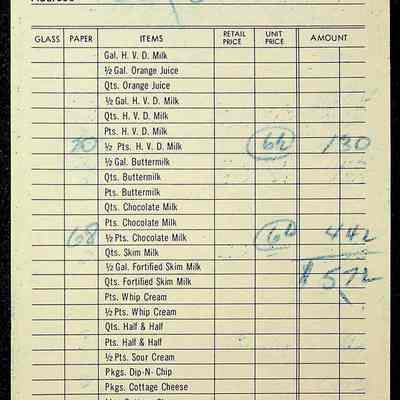 GLASS PAPER ITEMS RETAIL PRICE UNIT PRICE AMOUNT
Gal. H. V. D. Milk
½ Gal. Orange Juice
Qts. Orange Juice
½ Gal. H. V. D. Milk
Qts. H. V. D. Milk
Pts. H. V. D. Milk
20 ½ Pts. H. V. D. Milk 6½ 130
½ Gal. Buttermilk
Qts. Buttermilk
Pts. Buttermilk
Qts. Chocolate Milk
Pts. Chocolate Milk
68 ½ Pts. Chocolate Milk 442
Qts. Skim Milk
½ Gal. Fortified Skim Milk $572
Qts. Fortified Skim Milk
Pts. Whip Cream
½ Pts. Whip Cream
Qts. Half & Half
Pts. Half & Half
½ Pts. Sour Cream
Pkgs. Dip-N- Chip
Pkgs. Cottage Cheese